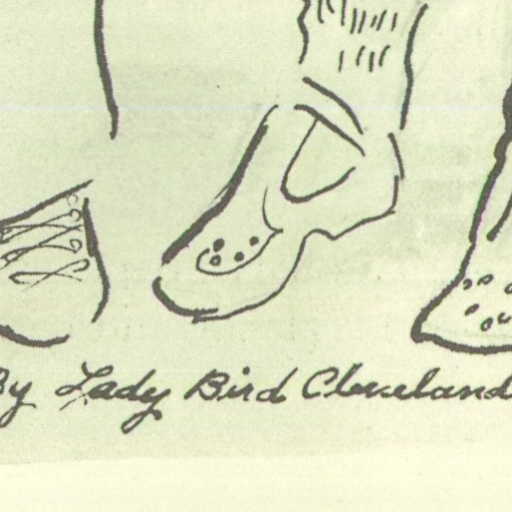 By Lady Bird Cleveland